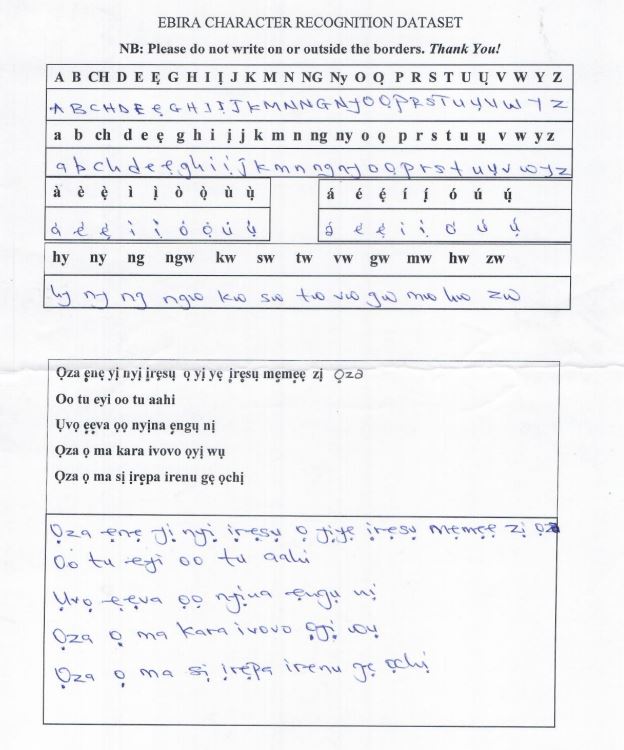 EBIRA CHARACTER RECOGNITION DATASET
NB: Please do not write on or outside the borders. Thank You!
A B CH D E Ẹ G H I Ị J K M N NG Ny O Ọ P R S T U Ụ V W Y Z
A B C H D E Ẹ G H I Ị J K M N N G Ny O Ọ P R S T U Ụ V W Y Z
a b ch d e ẹ g h i ị j k m n ng ny o ọ p r s t u ụ v w y z
a b c h d e ẹ g h i ị j k m n n g n y o ọ p r s t u ụ v w y z
à è ẹ̀ ì ị̀ ò ọ̀ ù ụ̀ á é ẹ́ í ị́ ó ú ụ́
á é ẹ́ í ị́ ó ọ́ ú ụ́ á é ẹ́ i ị ó ú ụ́
hy ny ng ngw kw sw tw vw gw mw hw zw
hy ny ng ngw kw sw tw vw gw mw hw zw
Ọza ẹnẹ yị nyị ịrẹsụ ọ yị yẹ ịrẹsụ mẹmẹẹ zị ọza
Oo tu eyi oo tu aahi
Ụvọ ẹẹva ọọ nyịna ẹngụ nị
Ọza ọ ma kara ivovo ọyị wụ
Ọza ọ ma sị ịrẹpa irenu gẹ ọchị
Ọza ẹnẹ yị nyị ịrẹsụ ọ yịyẹ ịrẹsụ mẹmẹẹ zị ọza
Oo tu eyi oo tu aahi
Ụvọ ẹẹva ọọ nyịna ẹngụ nị
Ọza ọ ma kara ivovo ọyị wụ
Ọza ọ ma sị ịrẹpa irenu gẹ ọchị